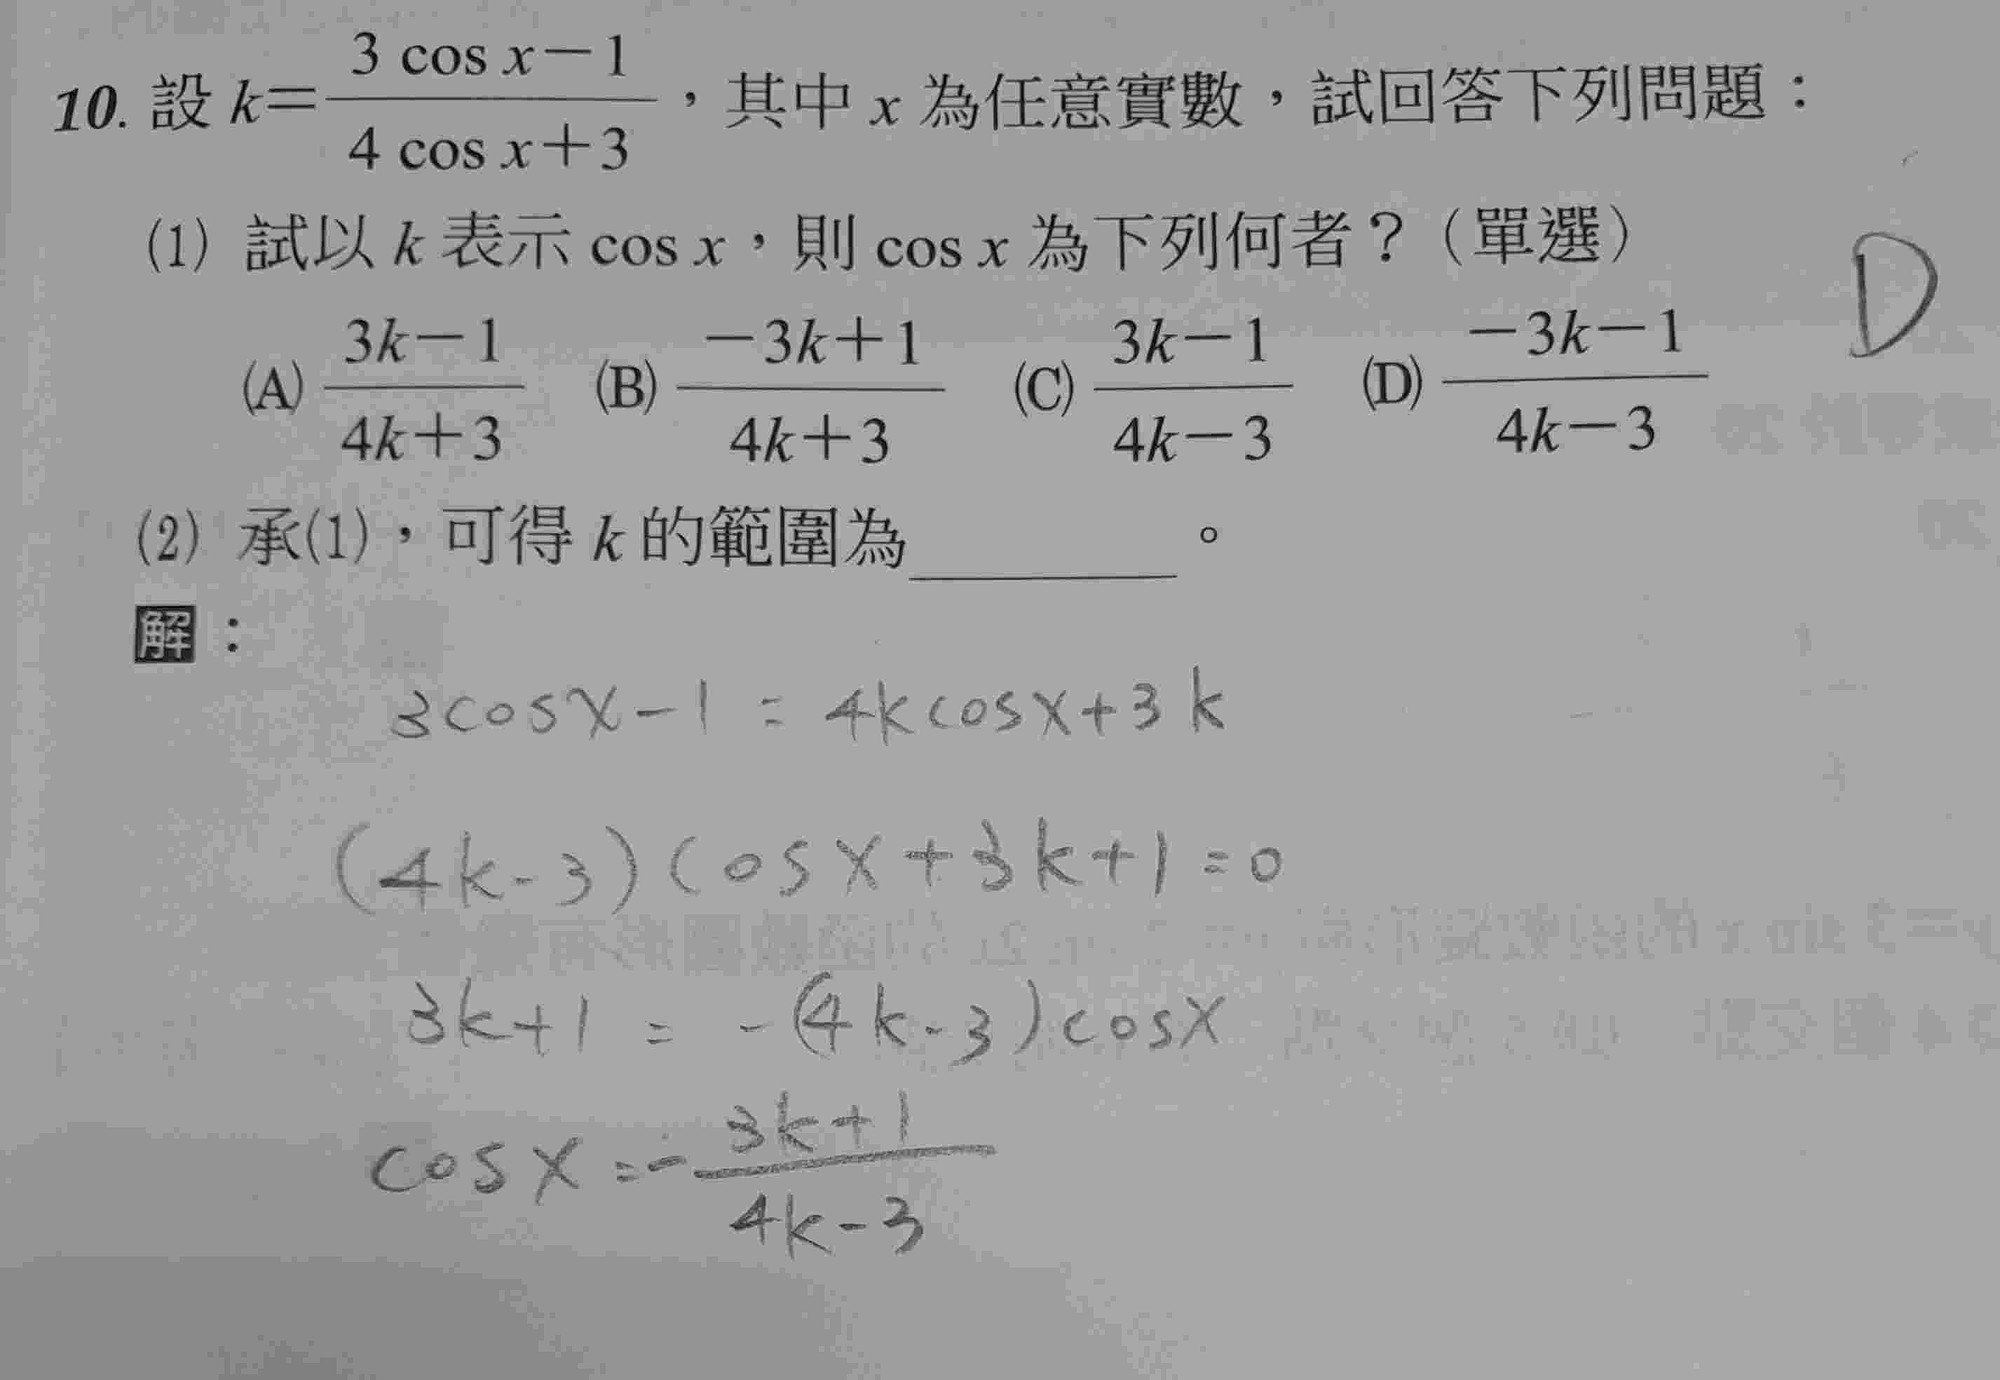 10. 設 k=\frac{3 cos x−1}{4 cos x+3}，其中 x 為任意實數，試回答下列問題：
(1) 試以 k 表示 cos x，則 cos x 為下列何者？（單選）
D
(A) \frac{3k−1}{4k+3} (B) \frac{−3k+1}{4k+3} (C) \frac{3k−1}{4k−3} (D) \frac{−3k−1}{4k−3}
(2) 承(1)，可得 k 的範圍為________。
解：
3cosx-1 = 4kcosx+3k
(4k-3)cosx+3k+1=0
3k+1 = -(4k-3)cosx
cosx=-\frac{3k+1}{4k-3}